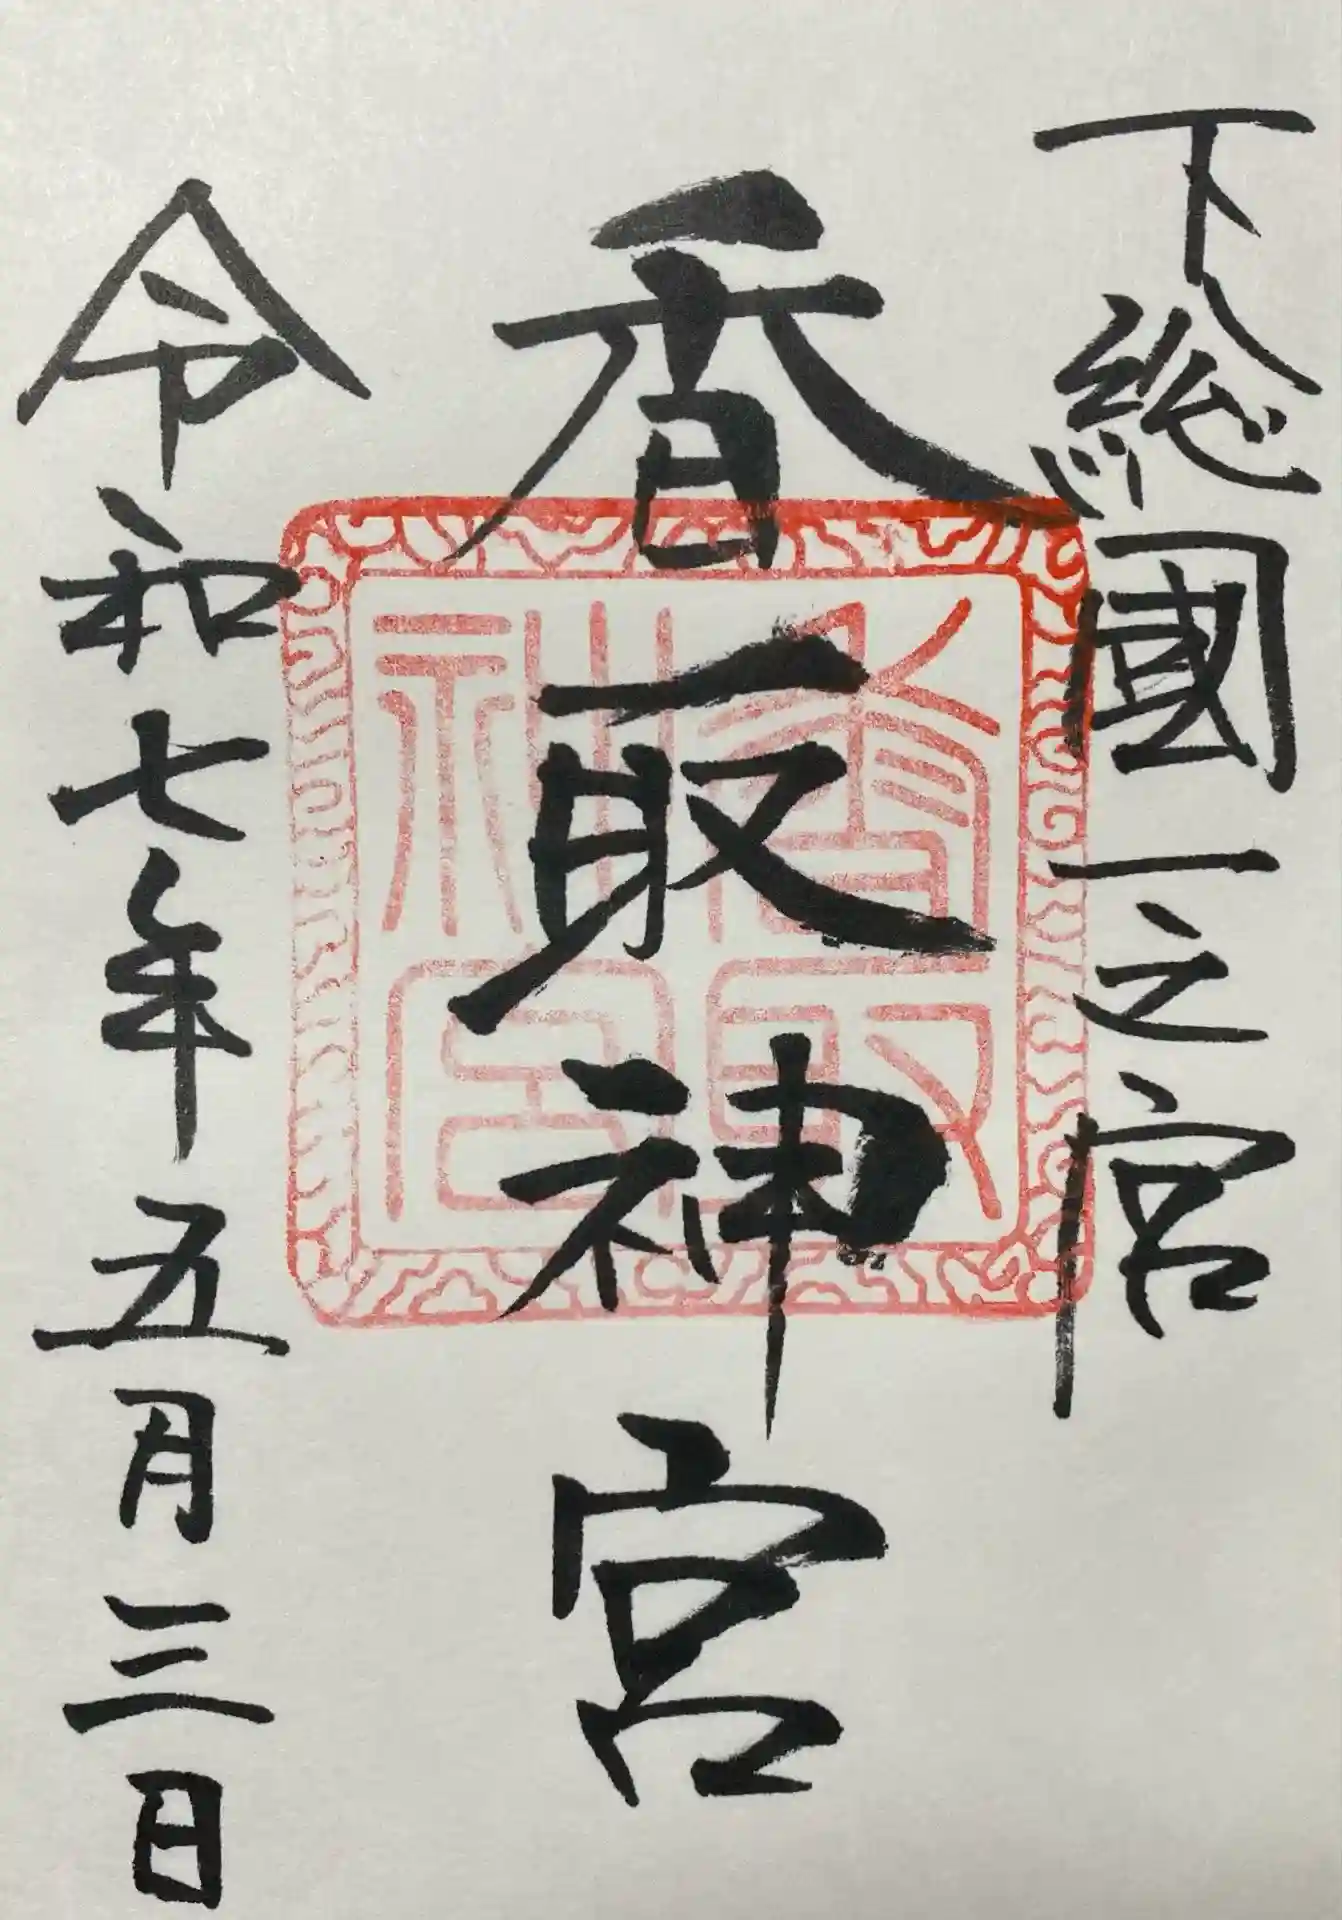 下総國一之宮
香取神宮
香取神宮
令和七年五月三日